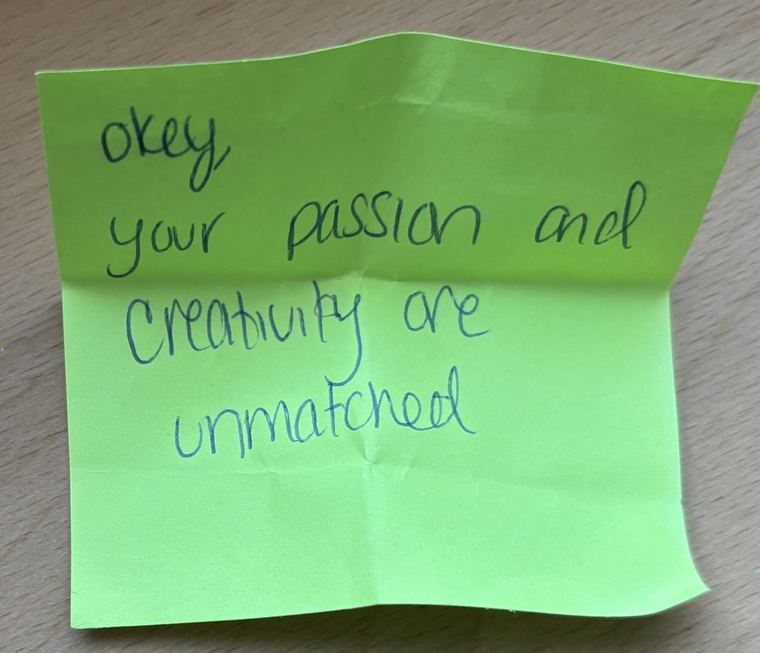 okey,
your passion and
Creativity are
unmatched